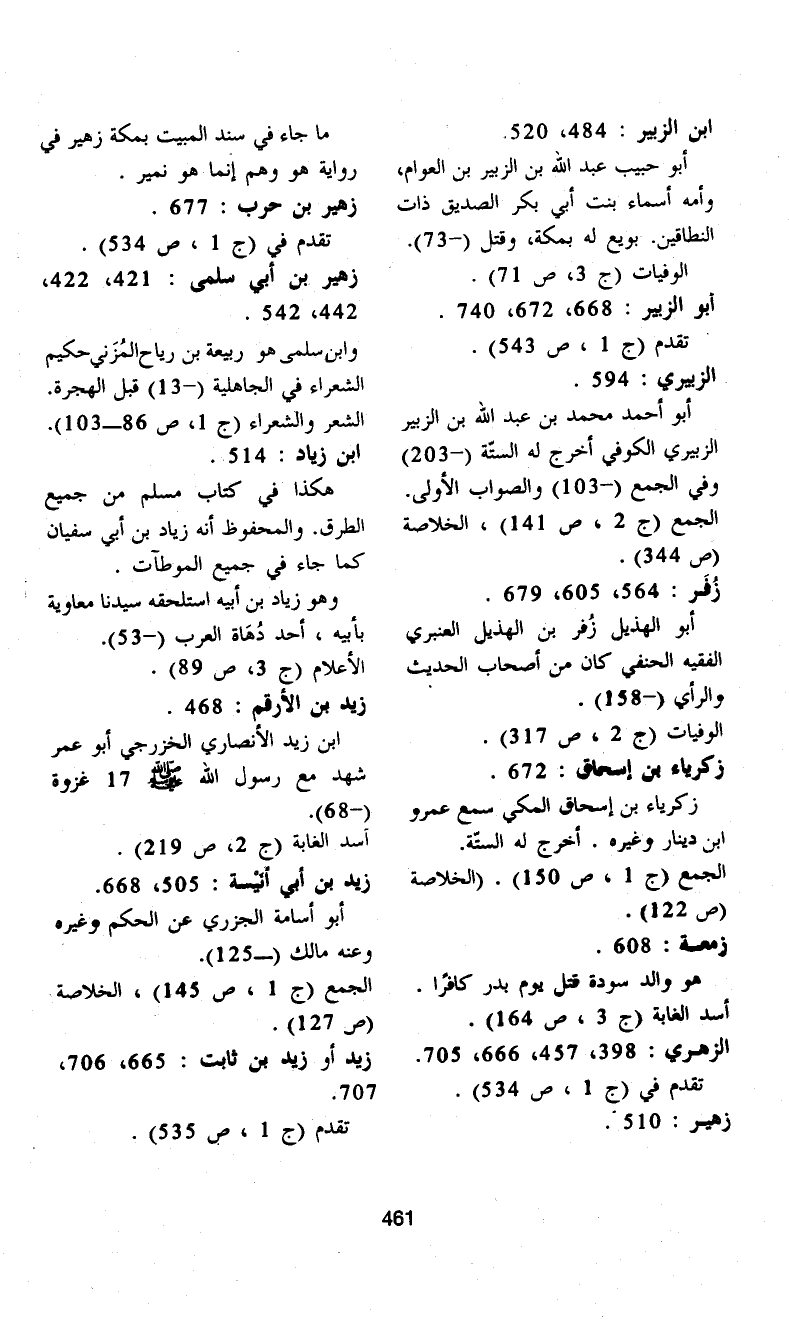 ابن الزبير : 484، 520.
أبو حبيب عبد الله بن الزبير بن العوام،
وأمه أسماء بنت أبي بكر الصديق ذات
النطاقين. بويع له بمكة، وقتل (–73).
الوفيات (ج 3، ص 71) .
أبو الزبير : 668، 672، 740 .
تقدم (ج 1 ، ص 543) .
الزبيري : 594 .
أبو أحمد محمد بن عبد الله بن الزبير
الزبيري الكوفي أخرج له الستّة (–203)
وفي الجمع (–103) والصواب الأولى.
الجمع (ج 2 ، ص 141) ، الخلاصة
(ص 344) .
زُفَر : 564، 605، 679 .
أبو الهذيل زُفر بن الهذيل العنبري
الفقيه الحنفي كان من أصحاب الحديث
والرأي (–158) .
الوفيات (ج 2 ، ص 317) .
زكرياء بن إسحاق : 672 .
زكرياء بن إسحاق المكي سمع عمرو
ابن دينار وغيره . أخرج له الستّة.
الجمع (ج 1 ، ص 150) . (الخلاصة
(ص 122) .
زمعة : 608 .
هو والد سودة قتل يوم بدر كافرًا .
أسد الغابة (ج 3 ، ص 164) .
الزهري : 398، 457، 666، 705.
تقدم في (ج 1 ، ص 534) .
زهير : 510 .
ما جاء في سند المبيت بمكة زهير في
رواية هو وهم إنما هو نمير .
زهير بن حرب : 677 .
تقدم في (ج 1 ، ص 534) .
زهير بن أبي سلمى : 421، 422،
442، 542 .
وابن سلمى هو ربيعة بن رياح المُزَني حكيم
الشعراء في الجاهلية (–13) قبل الهجرة.
الشعر والشعراء (ج 1، ص 86—103).
ابن زياد : 514 .
هكذا في كتاب مسلم من جميع
الطرق. والمحفوظ أنه زياد بن أبي سفيان
كما جاء في جميع الموطآت .
وهو زياد بن أبيه استلحقه سيدنا معاوية
بأبيه ، أحد دُهَاة العرب (–53).
الأعلام (ج 3، ص 89) .
زيد بن الأرقم : 468 .
ابن زيد الأنصاري الخزرجي أبو عمر
شهد مع رسول الله ﷺ 17 غزوة
(–68).
أسد الغابة (ج 2، ص 219) .
زيد بن أبي أنَيْسة : 505، 668.
أبو أسامة الجزري عن الحكم وغيره
وعنه مالك (—125).
الجمع (ج 1 ، ص 145) ، الخلاصة
(ص 127) .
زيد أو زيد بن ثابت : 665، 706،
707.
تقدم (ج 1 ، ص 535) .
461